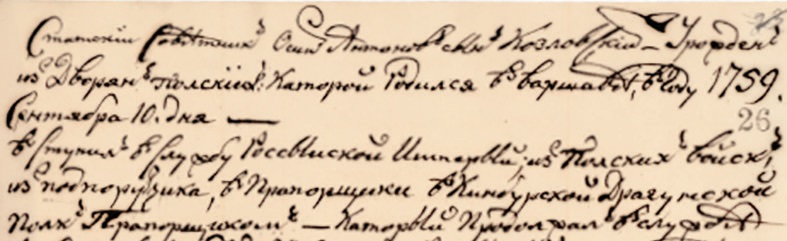 Статский Советникъ Осипъ Антоновъ сынъ Козловский – Урожденъ
изъ Дворянъ Полскихъ: Каторой Родился въ варшавѣ, въ Году 1759.
Сентября 10. дня —
26
въступилъ въ службу Россыйской Империи; изъ Полскихъ войскъ,
изъ подпорущика, въ Прапорщики въ Кинбурской Драгунской
Полкъ Прапорщикомъ — Каторый Продолжалъ въ службѣ